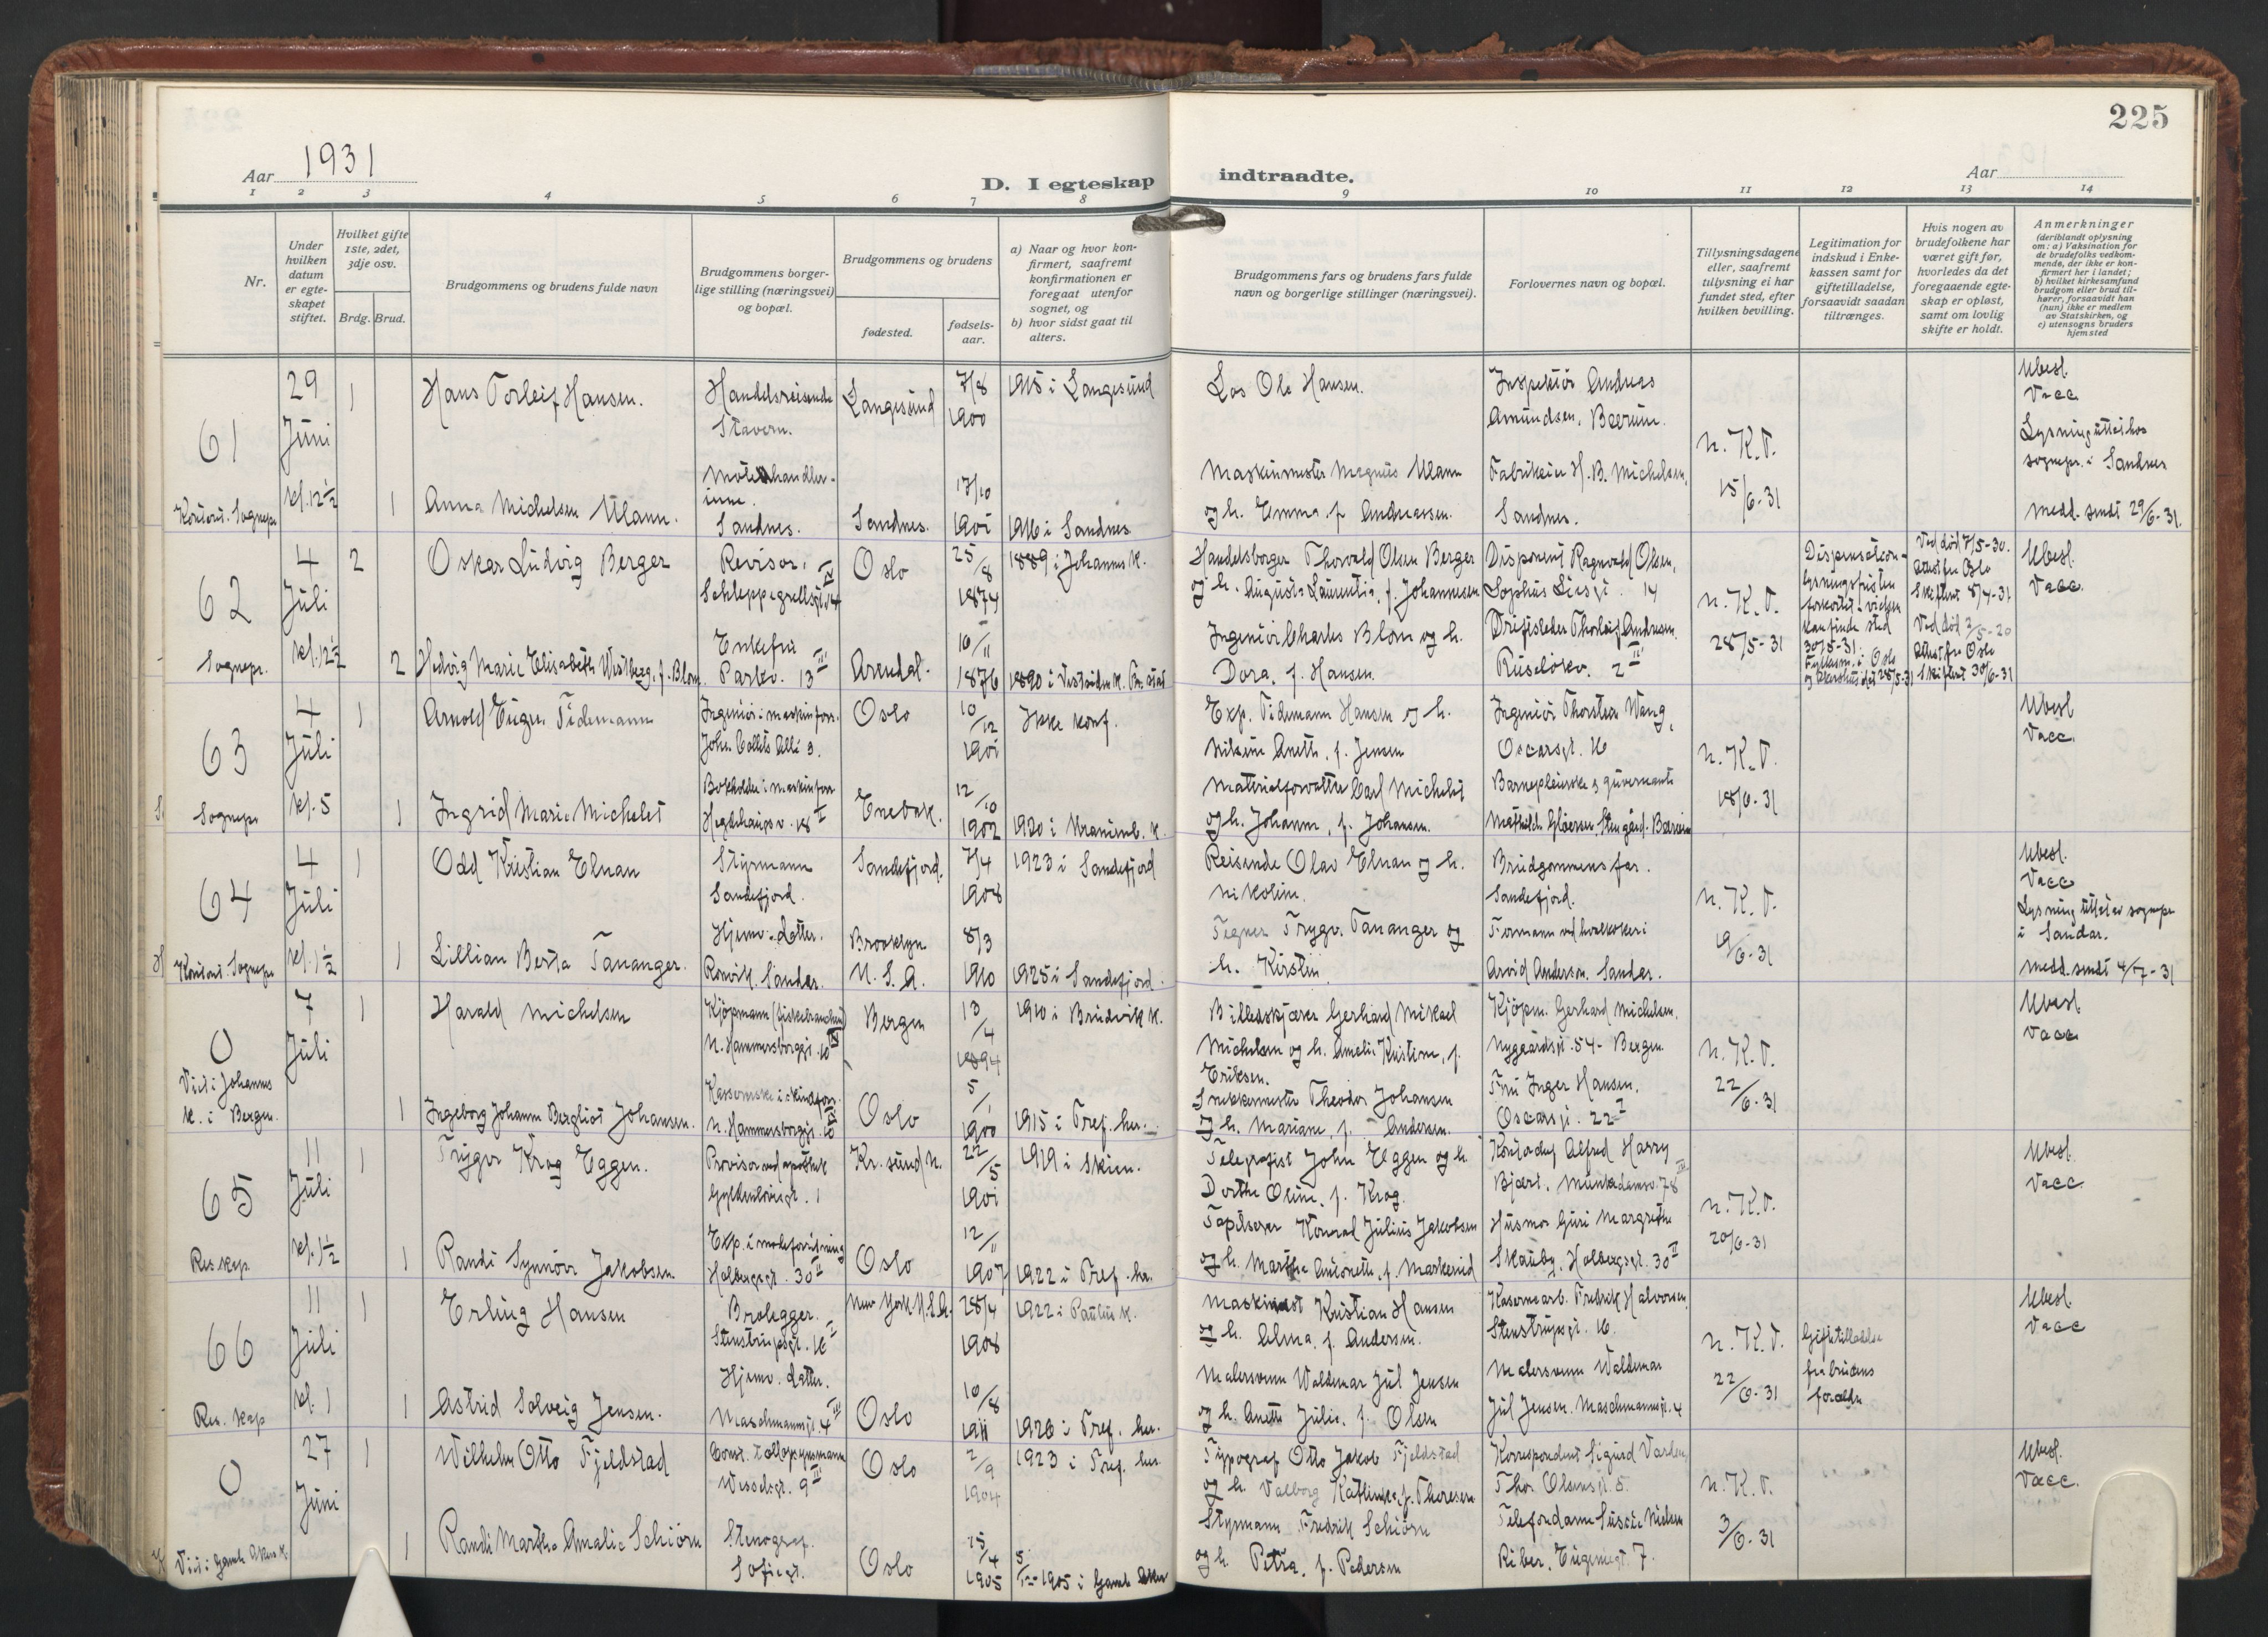 225
Aar 1931
D. I egteskap indtraadte.
Aar
1 2 3 4 5 6 7 8 9 10 11 12 13 14
Nr.
Under
hvilken
datum
er egte-
skapet
stiftet.
Hvilket gifte
1ste, 2det,
3dje osv.
Brdg. Brud.
Brudgommens og brudens fulde navn
Brudgommens borger-
lige stilling (næringsvei)
og bopæl.
Brudgommens og brudens
fødested.
fødsels-
aar.
a) Naar og hvor kon-
firmert, saafremt
konfirmationen er
foregaat utenfor
sognet, og
b) hvor sidst gaat til
alters.
Brudgommens fars og brudens fars fulde
navn og borgerlige stillinger (næringsvei).
Forlovernes navn og bopæl.
Tillysningsdagene
eller, saafremt
tillysning ei har
fundet sted, efter
hvilken bevilling.
Legitimation for
indskud i Enke-
kassen samt for
giftetilladelse,
forsaavidt saadan
tiltrænges.
Hvis nogen av
brudefolkene har
været gift før,
hvorledes da det
foregaaende egte-
skap er opløst,
samt om lovlig
skifte er holdt.
Anmerkninger
(deriblandt oplysning
om: a) Vaksination for
de brudefolks vedkom-
mende, der ikke er kon-
firmert her i landet;
b) hvilket kirkesamfund
brudgom eller brud til-
hører, forsaavidt han
(hun) ikke er medlem
av Statskirken, og
c) utensogns bruders
hjemsted
61
Kontoret. Sognepr.
29
Juni
kl. 12½
1
Hans Torleif Hansen.
Handelsreisende
Stavern.
Langesund
7/8
1900
1915 i Langesund
Los Ole Hansen.
Inspektør Andreas
Amundsen, Bærum.
n. K. T.
15/6-31
Ubesl.
Vacc.
Lysning uttat hos
sognepr. i Sandnes
Medd. sendt 29/6-31.
1
Anna Michelsen Ulann.
Motehandler-
inne.
Sandnes.
Sandnes.
17/10
1901
1916 i Sandnes
Maskinmester Magnus Ulann
og h. Emma f. Andreassen.
Fabrikeier H. B. Michelsen,
Sandnes.
62
Sognepr.
4
Juli
kl. 12½
2
Oskar Ludvig Berger
Revisor.
Schleppegrellsgt. 14 IV
Oslo
25/8
1874
1889 i Johannes k.
Handelsborger Thorvald Olsen Berger
og h. Augusta Laurentia, f. Johannesen
Disponent Ragnvald Olsen,
Sophus Liesgt. 14
n. K. T.
28/5-31
Dispensasjon
lysningsfristen
forkortet - vielsen
kan finde sted
30/5-31.
Fylkesm. i Oslo
og Akershus dat 28/5-31
Ved død 7/5-30.
Attest fra Oslo
Skifteret 8/4-31
Ubesl.
Vacc.
2
Hedvig Marie Elisabeth Westberg, f. Blom.
Enkefru
Parkv. 13 III
Arendal.
10/11
1876
1890 i Vestsidens k.
Ingeniør Charles Blom og h.
Dora, f. Hansen.
Driftsleder Thorleif Andresen
Ruseløkv. 2 III
Ved død 2/5-20
Attest fra Oslo
Skifteret 30/6-31
63
Sognepr
4
Juli
kl. 5
1
Arnold Eugen Tidemann
Ingeniør i maskinforr.
John Colletts Allé 3.
Oslo
10/12
1901
Ikke konf.
Exp. Tidemann Hansen og h.
Nikoline Aneth. f. Jensen
Ingeniør Thorstein Wang,
Oscarsgt. 16
n. K. T.
18/6-31
Ubesl
Vacc.
1
Ingrid Marie Michelet
Bokholder i maskinforr
Hegdehaugsv. 18 I
Enebak.
12/10
1902
1920 i Uranienb. k.
Materialforvalter Carl Michelet
og h. Johanne, f. Johansen.
Barnepleierske & guvernante
Mathilde Gløersen, Stengård. Bærum
64
Kontoret. Sognepr
4
Juli
kl. 1½
1
Odd Kristian Elnan
Styrmann
Sandefjord.
Sandefjord.
7/4
1908
1923 i Sandefjord
Reisende Olav Elnan og h.
Nikoline.
Brudgommens far.
Sandefjord.
n. K. T.
19/6-31
Ubesl.
Vacc
Lysning uttat av sognepr
i Sandar.
Medd. sendt 4/7-31
1
Lillian Berta Tananger.
Hjemv. datter.
Ranvik. Sandar.
Brooklyn
U. S. A.
8/3
1910
1925 i Sandefjord.
Tegner Trygv. Tananger og
h. Kirstin
Formann ved hvalkokeri
Arvid Anderson. Sandar.
0
Viet i Johannes
k. i Bergen.
7
Juli
1
Harald Michelsen
Kjøpmann (fiskebranchen)
N. Hammersborggt. 10
Bergen
13/4
1894
1910 i Bruvik k.
Billedskjærer Gerhard Mikael
Michelsen og h. Amalie Kristine, f.
Eriksen.
Kjøpm. Gerhard Michelsen,
Nygaardsgt. 54 - Bergen.
n. K. T.
22/6-31
Ubesl
Vacc
1
Ingeborg Johanne Bergliot Johansen.
Kassererske i skindforr.
N. Hammersborggt. 10
Oslo
5/1
1900
1915 i Tref. her.
Snekkermester Theodor Johansen
og h. Mariane, f. Andersen.
Fru Inger Hansen.
Oscarsgt. 22 I
65
Res. kap.
11
Juli
kl. 1½
1
Trygve Krog Eggen.
Provisor ved apothek
Gyldenløvesgt. 1
Kr. sund N.
22/5
1901
1919 i Skien.
Telegrafist John Eggen og h.
Dorthe Oline, f. Krog.
Kontorchef Alfred Harry
Bjært. Munkedamsv. 78 III
n. K. T.
20/6-31
Ubesl.
Vacc.
1
Randi Synnøve Jakobsen
Exp. i moteforretning
Holbergsgt. 30 II
Oslo
12/11
1907
1922 i Tref. her.
Tapetserer Konrad Julius Jakobsen
og h. Marthe Antonette, f. Markerud
Husmor Guri Margrethe
Skauby. Holbergsgt. 30 II
66
Res. kap
11
Juli
kl. 1
1
Erling Hansen
Brolegger.
Stenstrupsgt. 16 I
New York U.S.A.
28/4
1908
1922 i Paulus k.
Maskinist Kristian Hansen
og h. Alma, f. Andersen.
Kasernearb. Fredrik Halvorsen,
Stenstrupsgt. 16.
n. K. T.
22/6-31
Giftetilladelse
fra brudens
foreldre
Ubesl.
Vacc
1
Astrid Solveig Jensen.
Hjemv. datter.
Maschmannsgt. 4 III
Oslo
10/8
1911
1926 i Tref. her.
Malersvenn Waldemar Jul Jensen
og h. Anette Julie, f. Olsen
Malersvenn Waldemar
Jul Jensen. Maschmannsgt. 4
0
Viet i Gamle Akers k.
27
Juni
1
Wilhelm Otto Fjeldstad
Const. tolloppsynsmann
Wesselsgt. 9 III
Oslo
2/9
1904
1923 i Tref. her
Typograf Otto Jakob Fjeldstad
og h. Valborg Kathinka, f. Thoresen
Korrespondent Sigurd Varden,
Thv. Olsensgt. 5.
n. K. T.
3/6-31
Ubesl.
Vacc.
1
Randi Marthe Amalie Schiørn
Stenograf.
Sofiegt.
Oslo
25/4
1905
1905 i Gamle Aker
Styrmann Fredrik Schiørn
og h. Petra, f. Pedersen
Telefondame Sussie Nielsen
Riber, Eugeniegt. 7.